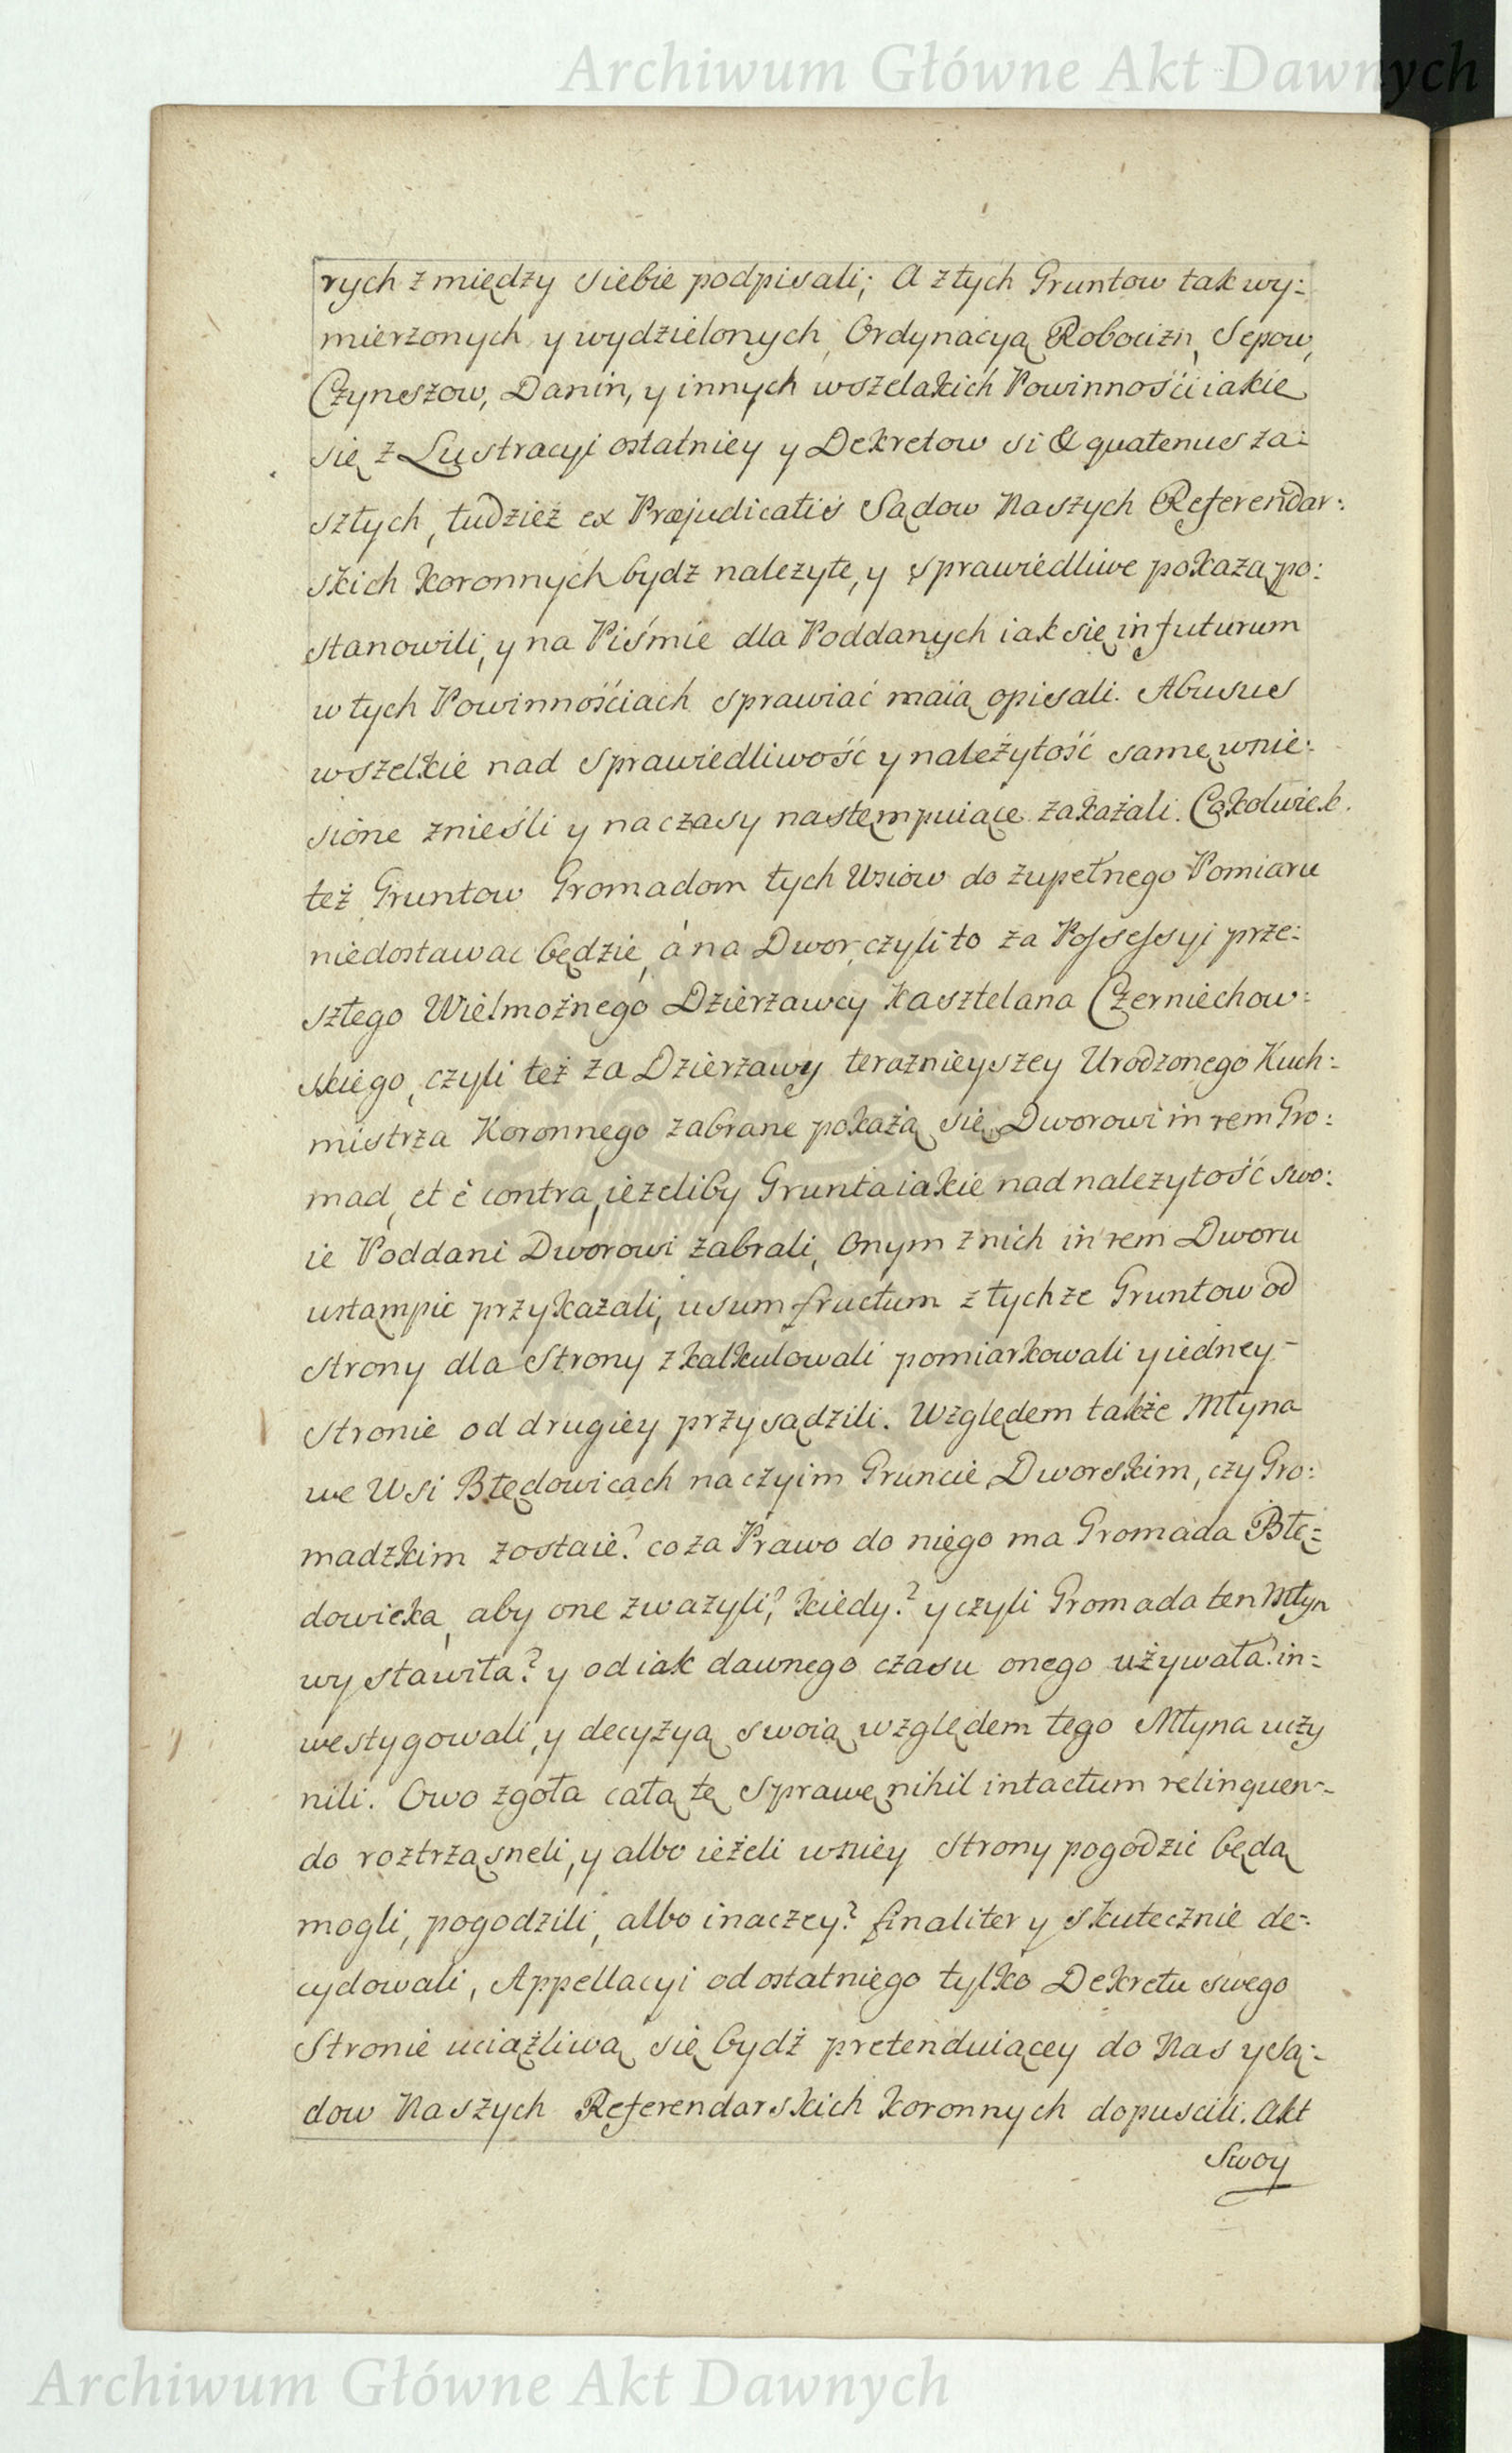 Archiwum Główne Akt Dawnych
rych z między siebie podpisali; A z tych Gruntow tak wy:
mierzonych y wydzielonych, Ordynacyą Robocizn, Sepow,
Czynszow, Danin, y innych wszelakich Powinności iakie
się z Lustracyi ostatniey y Dekretow si & quatenus za:
szłych, tudzież ex Præjudicatis Sądow Naszych Referendar:
skich Koronnych bydz należyte, y sprawiedliwe pokażą po:
stanowili, y na Piśmie dla Poddanych iak się in futurum
w tych Powinnościach sprawiać maią opisali. Abusus
wszelkie nad sprawiedliwość y należytość samę wnie:
sione znieśli y na czasy nastempuiące zakażali. Cokolwiek
też Gruntow Gromadom tych Wsiow do zupełnego Pomiaru
niedostawac będzie, á na Dwor, czyli to za Possessyi prze:
szłego Wielmożnego Dzierzawcy Kasztelana Czerniechow:
skiego, czyli też za Dzierżawy teraznieyszey Urodzonego Kuch:
mistrza Koronnego zabrane pokażą się, Dworowi in rem Gro:
mad, et è contra, ieżeliby Grunta iakie nad należytość swo:
ie Poddani Dworowi zabrali, Onym z nich in rem Dworu
ustąmpic przykazali, usum fructum z tychże Gruntow od
strony dla Strony zkalkulowali pomiarkowali y iedney
stronie od drugiey przysądzili. Względem także Młyna
we Wsi Błędowicach na czyim Gruncie, Dworskim, czy Gro:
madzkim zostaie? co za Prawo do niego ma Gromada Błę:
dowicka, aby one zważyli, kiedy? y czyli Gromada ten Młyn
wystawiła? y od iak dawnego czasu onego używała? in:
westygowali, y decyzyą swoią względem tego Młyna uczy
nili. Owo zgoła całą tę Sprawę nihil intactum relinquen:
do roztrząsneli, y albo ieżeli w niey Strony pogodzic będą
mogli, pogodzili, albo inaczey? finaliter y skutecznie de:
cydowali, Appellacyi od ostatniego tylko Dekretu swego
Stronie uciążliwą się bydź pretenduiącey do Nas y Są:
dow Naszych Referendarskich Koronnych dopuscili. Akt
Swoy
Archiwum Główne Akt Dawnych